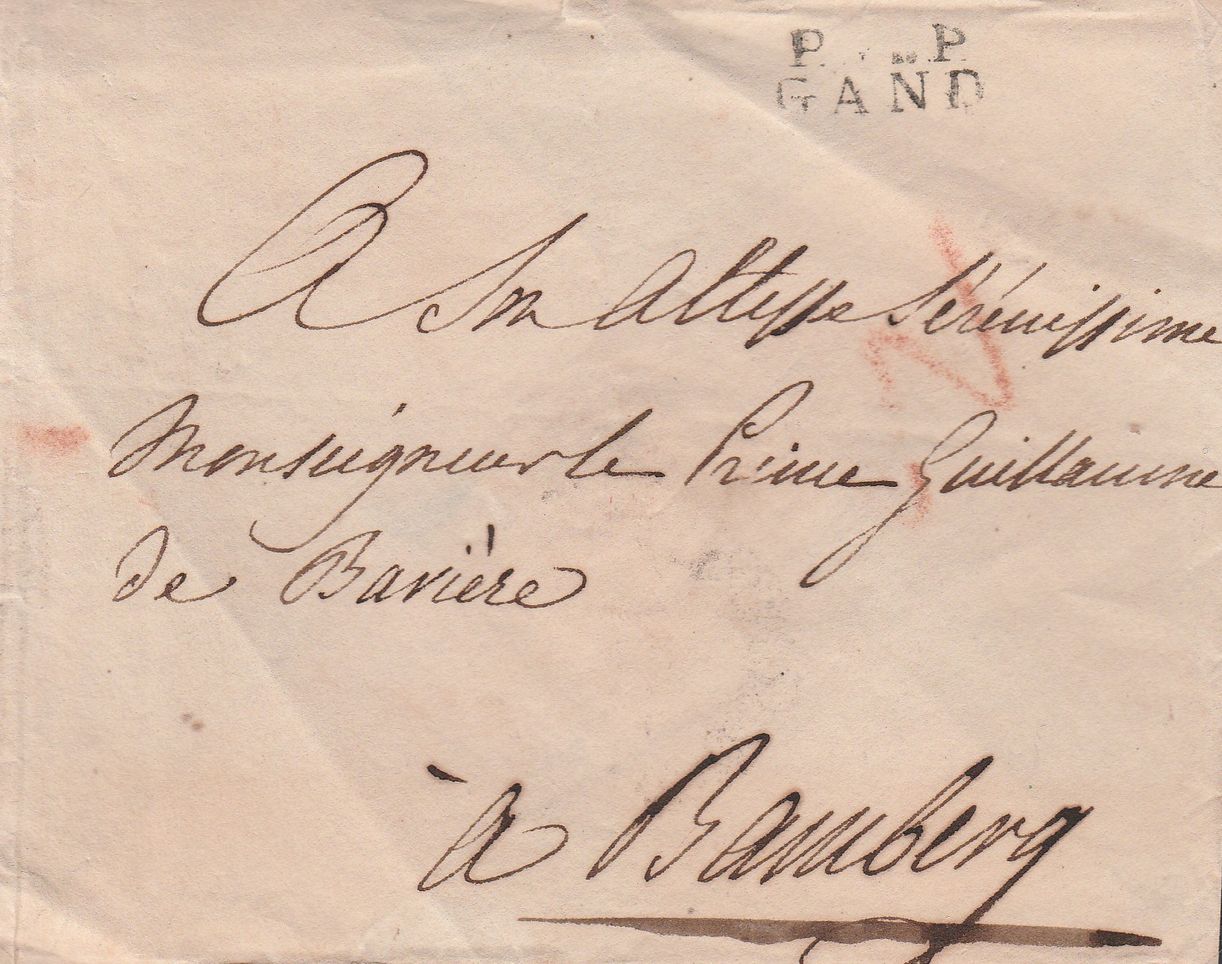 P P
GAND
A Son Altesse Sérénissime
Monseigneur le Prince Guillaume
de Bavière
à Bamberg